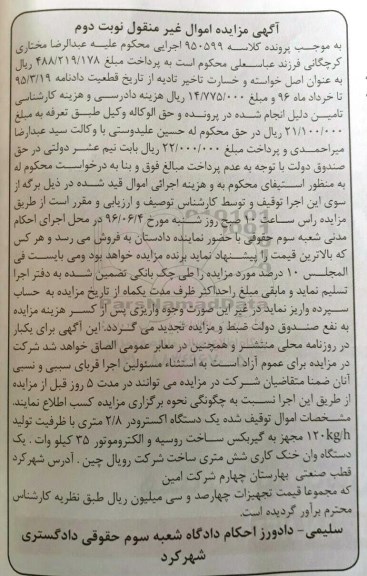 آگهی مزایده اموال غیر منقول نوبت دوم
به موجب پرونده کلاسه ۹۵۰۵۹۹ اجرایی محکوم علیه عبدالرضا مختاری
کرچگانی فرزند عباسعلی محکوم است به پرداخت مبلغ ۴۸۸/۲۱۹/۱۷۸ ریال
به عنوان اصل خواسته و خسارت تاخیر تادیه از تاریخ قطعیت دادنامه ۹۵/۳/۱۹
تا خرداد ماه ۹۶ و مبلغ ۱۴/۷۷۵/۰۰۰ ریال هزینه دادرسی و هزینه کارشناسی
تامین دلیل انجام شده در پرونده و حق الوکاله وکیل طبق تعرفه به مبلغ
۲۱/۱۰۰/۰۰۰ ریال در حق محکوم له حسین علیدوستی با وکالت سید عبدالرضا
میراحمدی و پرداخت مبلغ ۲۲/۰۰۰/۰۰۰ ریال بابت نیم عشر دولتی در حق
صندوق دولت با توجه به عدم پرداخت مبالغ فوق و بنا به درخواست محکوم له
به منظور استیفای محکوم به و هزینه اجرائی اموال قید شده در ذیل برگه از
سوی این اجرا توقیف و توسط کارشناس توصیف و ارزیابی و مقرر است از طریق
مزایده راس ساعت ۱۰ صبح روز شنبه مورخ ۹۶/۰۶/۴ در محل اجرای احکام
مدنی شعبه سوم حقوقی با حضور نماینده دادستان به فروش می رسد و هر کس
که بالاترین قیمت را پیشنهاد نماید برنده مزایده خواهد بود ومی بایست فی
المجلس ۱۰ درصد مورد مزایده را طی چک بانکی تضمین شده به دفتر اجرا
تسلیم نماید و مابقی مبلغ راحداکثر ظرف مدت یکماه از تاریخ مزایده به حساب
سپرده واریز نماید در غیر این صورت وجوه واریزی پس از کسر هزینه مزایده
به نفع صندوق دولت ضبط و مزایده تجدید می گردد. این آگهی برای یکبار
در روزنامه محلی منتشر و همچنین در معابر عمومی الصاق خواهد شد شرکت
در مزایده برای عموم آزاد است به استثناء مسئولین اجرا قربای سببی و نسبی
آنان ضمنا متقاضیان شرکت در مزایده می توانند در مدت ۵ روز قبل از مزایده
از طریق این اجرا نسبت به چگونگی نحوه برگزاری مزایده کسب اطلاع نمایند.
مشخصات اموال توقیف شده یک دستگاه اکسترودر ۲/۸ متری با ظرفیت تولید
۱۲۰kg/h مجهز به گیربکس ساخت روسیه و الکتروموتور ۳۵ کیلو وات . یک
دستگاه وان خنک کاری شش متری ساخت شرکت رویال چین . آدرس شهرکرد
قطب صنعتی بهارستان چهارم شرکت امین
که مجموعا قیمت تجهیزات چهارصد و سی میلیون ریال طبق نظریه کارشناس
محترم برآور گردیده است.
سلیمی- دادورز احکام دادگاه شعبه سوم حقوقی دادگستری
شهرکرد
ParsNamadData